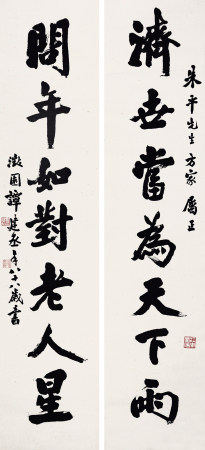 朱平先生方家属正
濟世當為天下雨
問年如對老人星
澂園譚建丞年八十八歲書